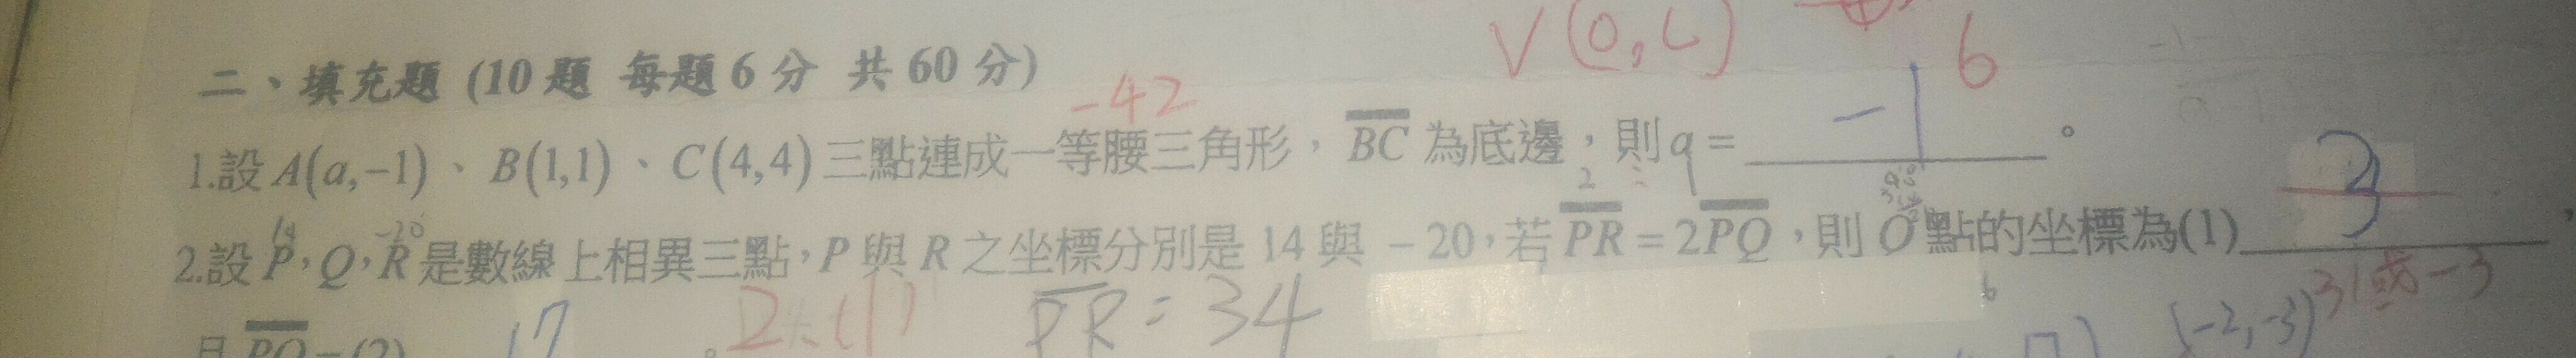 V(0,6)
二、填充題 (10 題 每題 6 分 共 60 分)
-42
1.設 A(a,−1)、B(1,1)、C(4,4) 三點連成一等腰三角形,BC 為底邊,則 a = -1 。
14 -20
2.設 P,Q,R 是數線上相異三點,P 與 R 之坐標分別是 14 與 −20,若 PR = 2PQ,則 Q 點的坐標為(1) 3,
31或-3
且 PQ = (2) 17 。 PR = 34 (-2,-3)